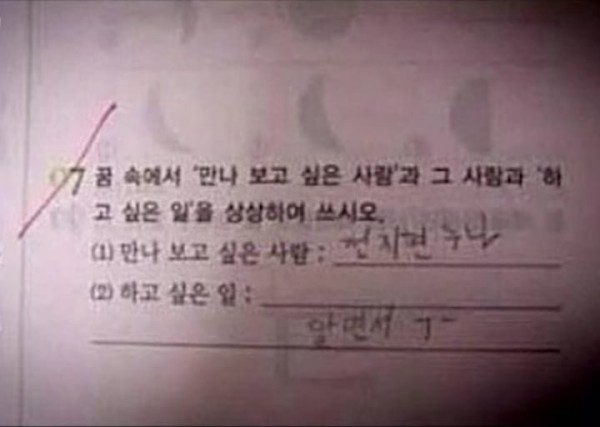 07 꿈 속에서 '만나 보고 싶은 사람'과 그 사람과 '하
고 싶은 일'을 상상하여 쓰시오.
(1) 만나 보고 싶은 사람 : 전지현 누나
(2) 하고 싶은 일 :
알면서 ㄱ-